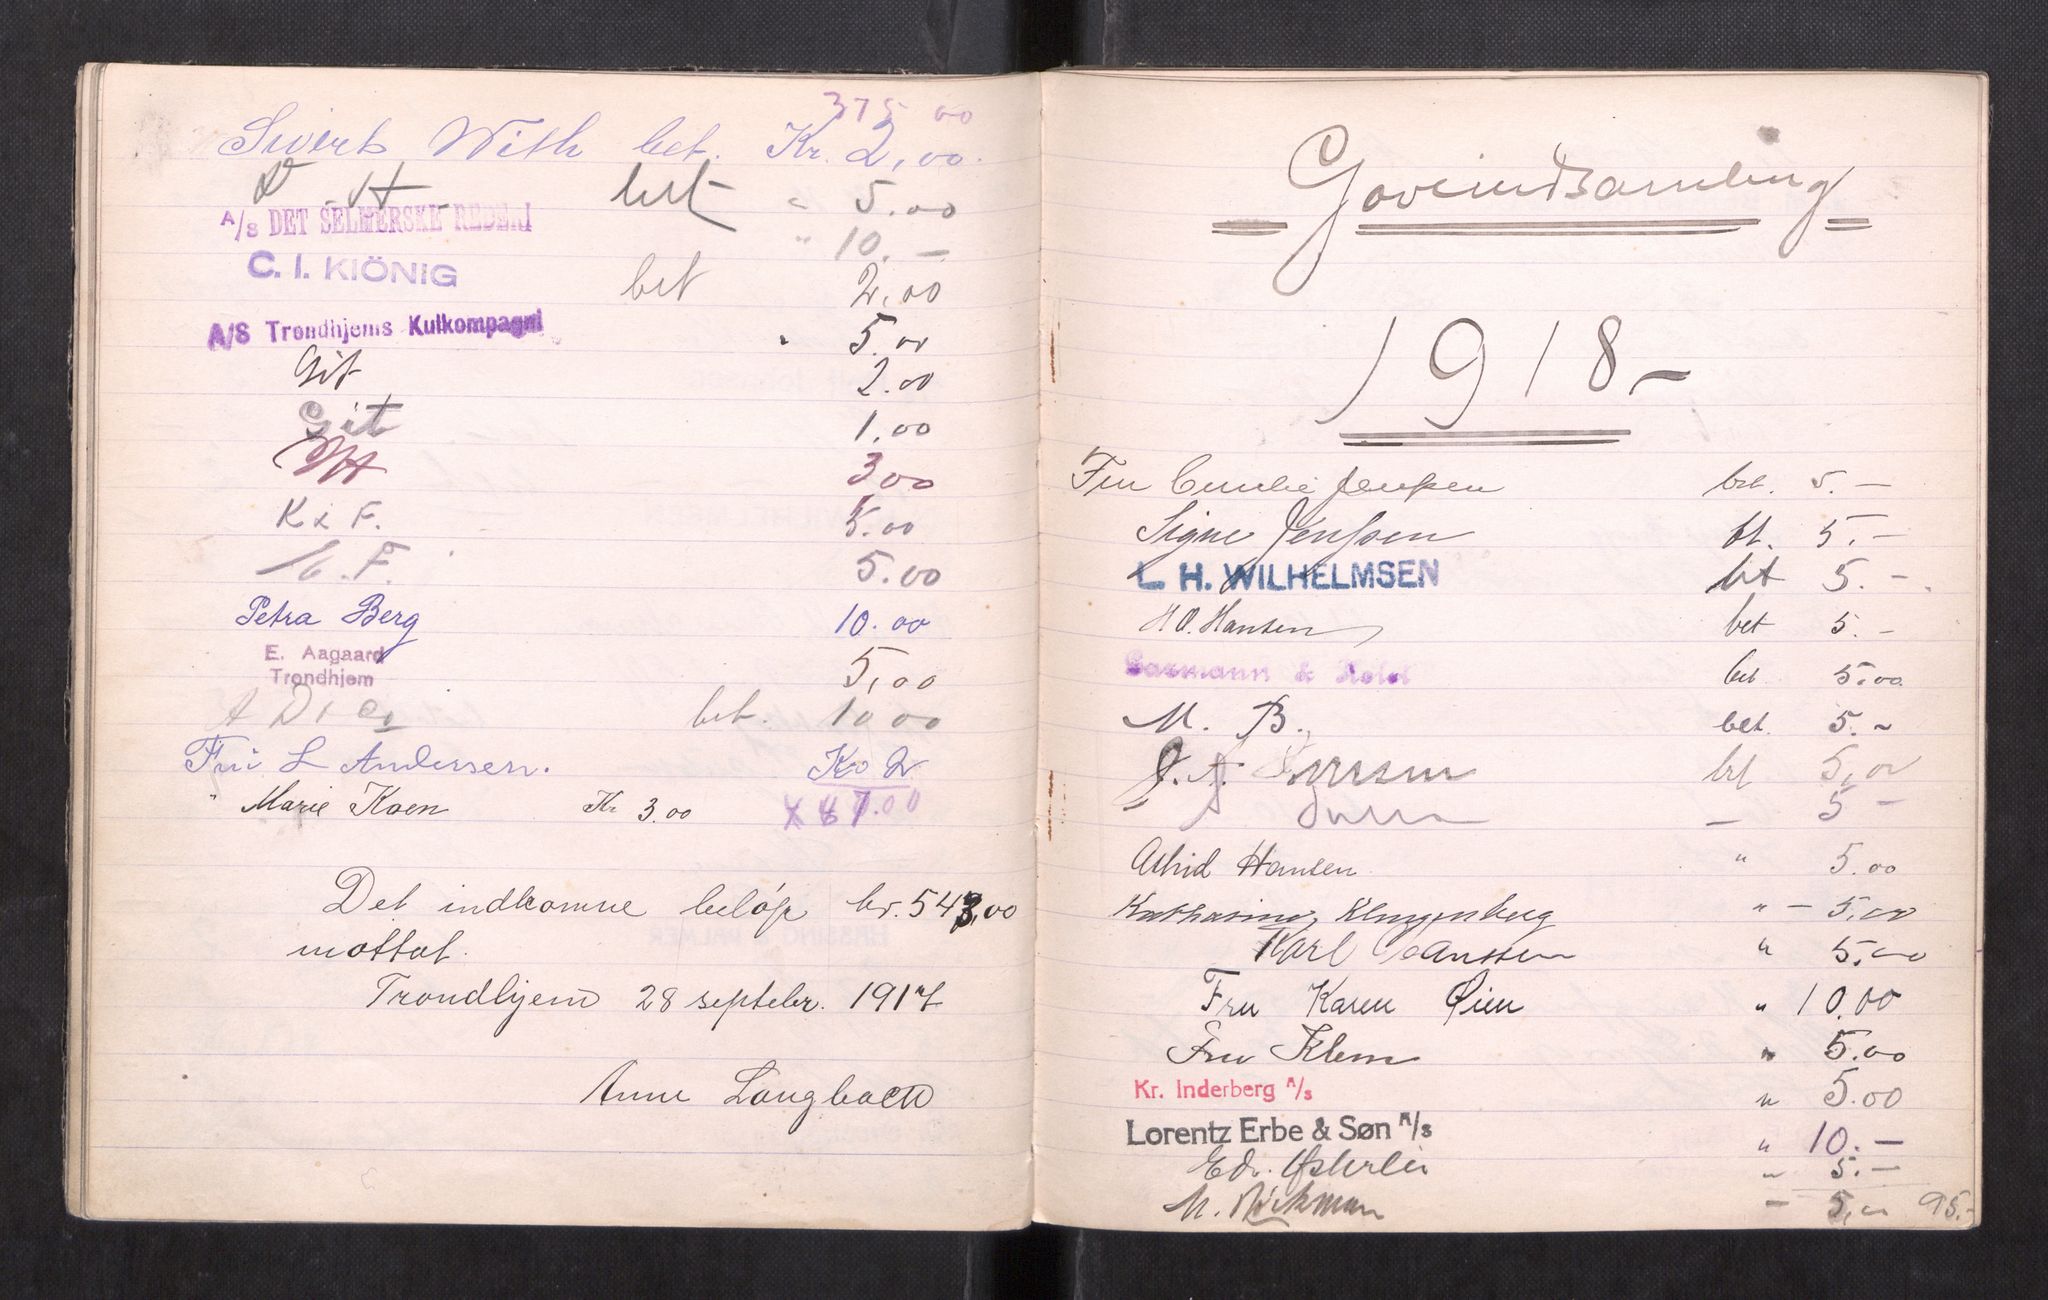 375 00
Sivert With bet. Kr. 2,00.
bet " 5.00
A/S DET SELMERSKE REDERI " 10.-
C. I. KIÖNIG bet 2,00
A/S Trondhjems Kulkompagni " 5.00
Git 2.00
Git 1,00
3 00
K & F. 5.00
F. 5.00
Petra Berg 10.00
E. Aagaard
Trondhjem 5,00
bet. 10 00
Fru L Andersen. Kr 2
" Marie Koen Kr 3.00
Det indkomne beløp kr. 543,00
mottat.
Trondhjem 28 septebr. 1917
Anne Langbach
Govindsamling
1918-
Fru Jenssen bet. 5.-
Signe Jenssen bt. 5.-
L. H. WILHELMSEN bet 5.-
H.O. Hansen bet 5.-
bet 5.00
M. B. bet. 5.-
bet 5,00
- 5 -
Astrid Hansen " 5.00
Katharina Klingenberg " - 5,00
Karl Janssen " 5.00
Fru Karen Øien " 10.00
Fru Klem " 5.00
Kr. Inderberg A/S " 5.00
Lorentz Erbe & Søn A/S " 10.-
Edv. Østerlie " 5.-
M. Rickman - 5,00 95.-